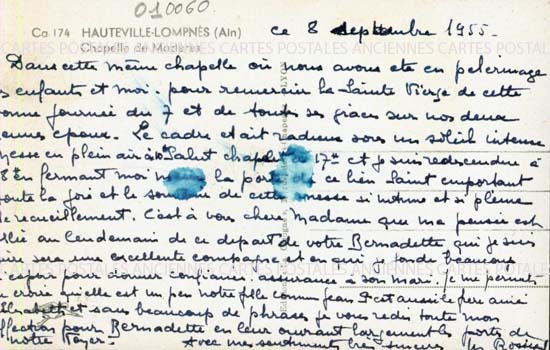 010060.
Ca 174 HAUTEVILLE-LOMPNÈS (Ain)
Chapelle de Mazières
ce 8 septembre 1955-
CARTES POSTALES ANCIENNES CARTES POSTALES
Dans cette même chapelle où nous avons été en pèlerinage
s enfants et moi- pour remercier la Sainte Vierge de cette
onne journée du 7 et de toutes ses graces sur nos deux
eunes époux. Le cadre était radieux sous un soleil intense
esse en plein air à 10h Salut chapelet à 17h et je suis redescendue à
8h en fermant moi la porte de ce lieu Saint emportant
toute la joie et le de cette messe si intime et si pleine
de recueillement. C'est à vous chère Madame que ma pensée est
allée au lendemain de ce départ de votre Bernadette, qui je suis
sûre sera une excellente compagne et en qui je fonde beaucoup
d'espoir de confiance assurance à son mari. je me permets
croire qu'elle est un peu notre fille comme Jean est aussi le frère aimé
Elisabeth et sans beaucoup de phrases je vous redis toute mon
affection pour Bernadette en leur ouvrant largement les portes de
notre foyer. Avec mes sentiments très sincères